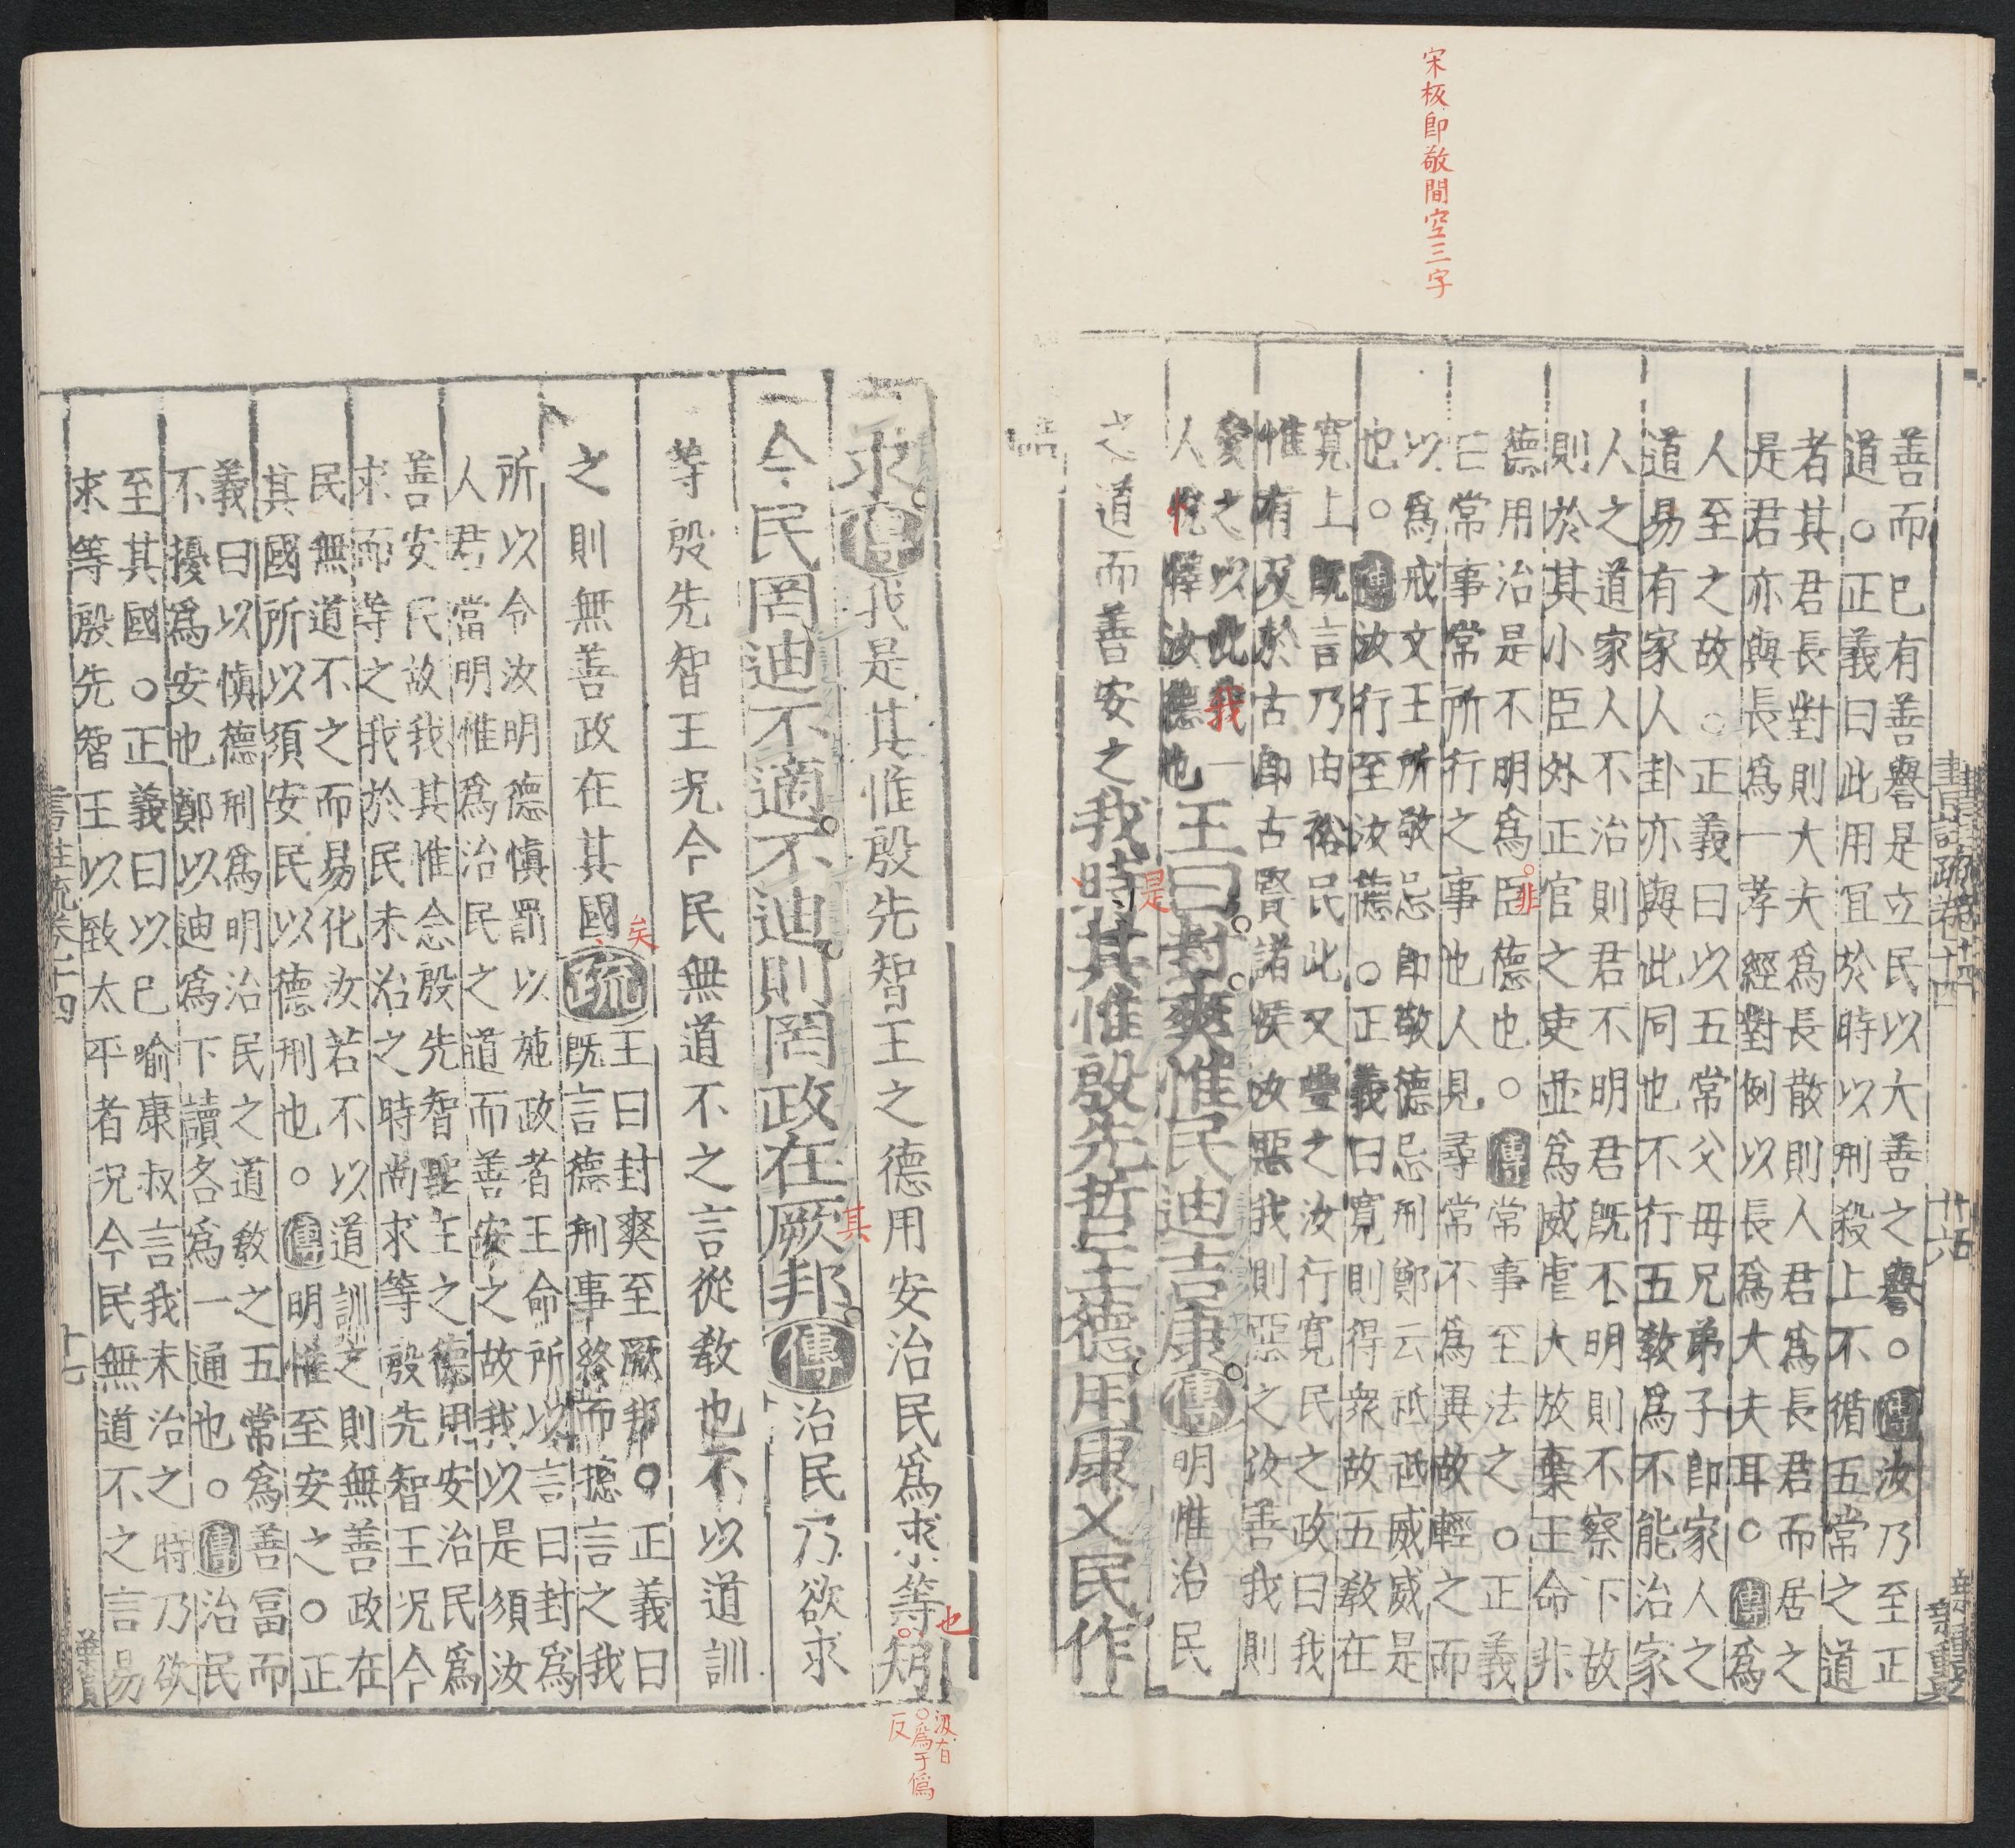 宋板即敬間空三字
書註疏卷十四
善而已有善譽是立民以大善之譽。傳汝乃至正
道。正義曰此用宜於時以刑殺上不循五常之道
者其君長對則大夫爲長散則人君爲長君而居之
是君亦與長爲一孝經對例以長爲大夫耳。傳爲
人至之故。正義曰以五常父母兄弟子即家人之
道易有家人卦亦與此同也不行五教爲不能治家
人之道家人不治則君不明君既不明則不察下故
則於其小臣外正官之吏並爲威虐大放棄王命非
德用治是不明爲臣德也。傳常事至法之。正義
非
曰常事常所行之事也人見尋常不爲異故輕之而
以爲戒文王所敬忌即敬德忌刑鄭云祗祗威威是
也。傳汝行至汝德。正義曰寬則得衆故五教在
寬上既言乃由裕民此又疊之汝行寬民之政曰我
惟有及於古即古賢諸侯汝惡我則惡之汝善我則
愛之以此我一
人悅懌汝德也
王曰。封。爽惟民迪吉康。傳明惟治民
是
之道而善安之我時其惟殷先哲王德。用康乂民作
求。傳我是其惟殷先智王之德用安治民爲求等矧
也
爲于僞反
今民罔迪不適。不迪。則罔政在厥邦。傳治民乃欲求
其
等殷先智王況今民無道不之言從教也不以道訓
之則無善政在其國疏
矣
王曰封爽至厥邦。正義曰
既言德刑事終而總言之我
所以令汝明德愼罰以施政者王命所以言曰封爲
人君當明惟爲治民之道而善安之故我以是須汝
善安民故我其惟念殷先智聖王之德思安治民爲
求而等之我於民未治之時尚求等殷先智王況今
民無道不之而易化汝若不以道訓之則無善政在
其國所以須安民以德刑也。傳明惟至安之。正
義曰以愼德刑爲明治民之道敎之五常爲善富而
不擾爲安也鄭以迪爲下讀各爲一通也。傳治民
至其國。正義曰以已喻康叔言我未治之時乃欲
求等殷先智王以致太平者況今民無道不之言易
書註疏卷十四
十七